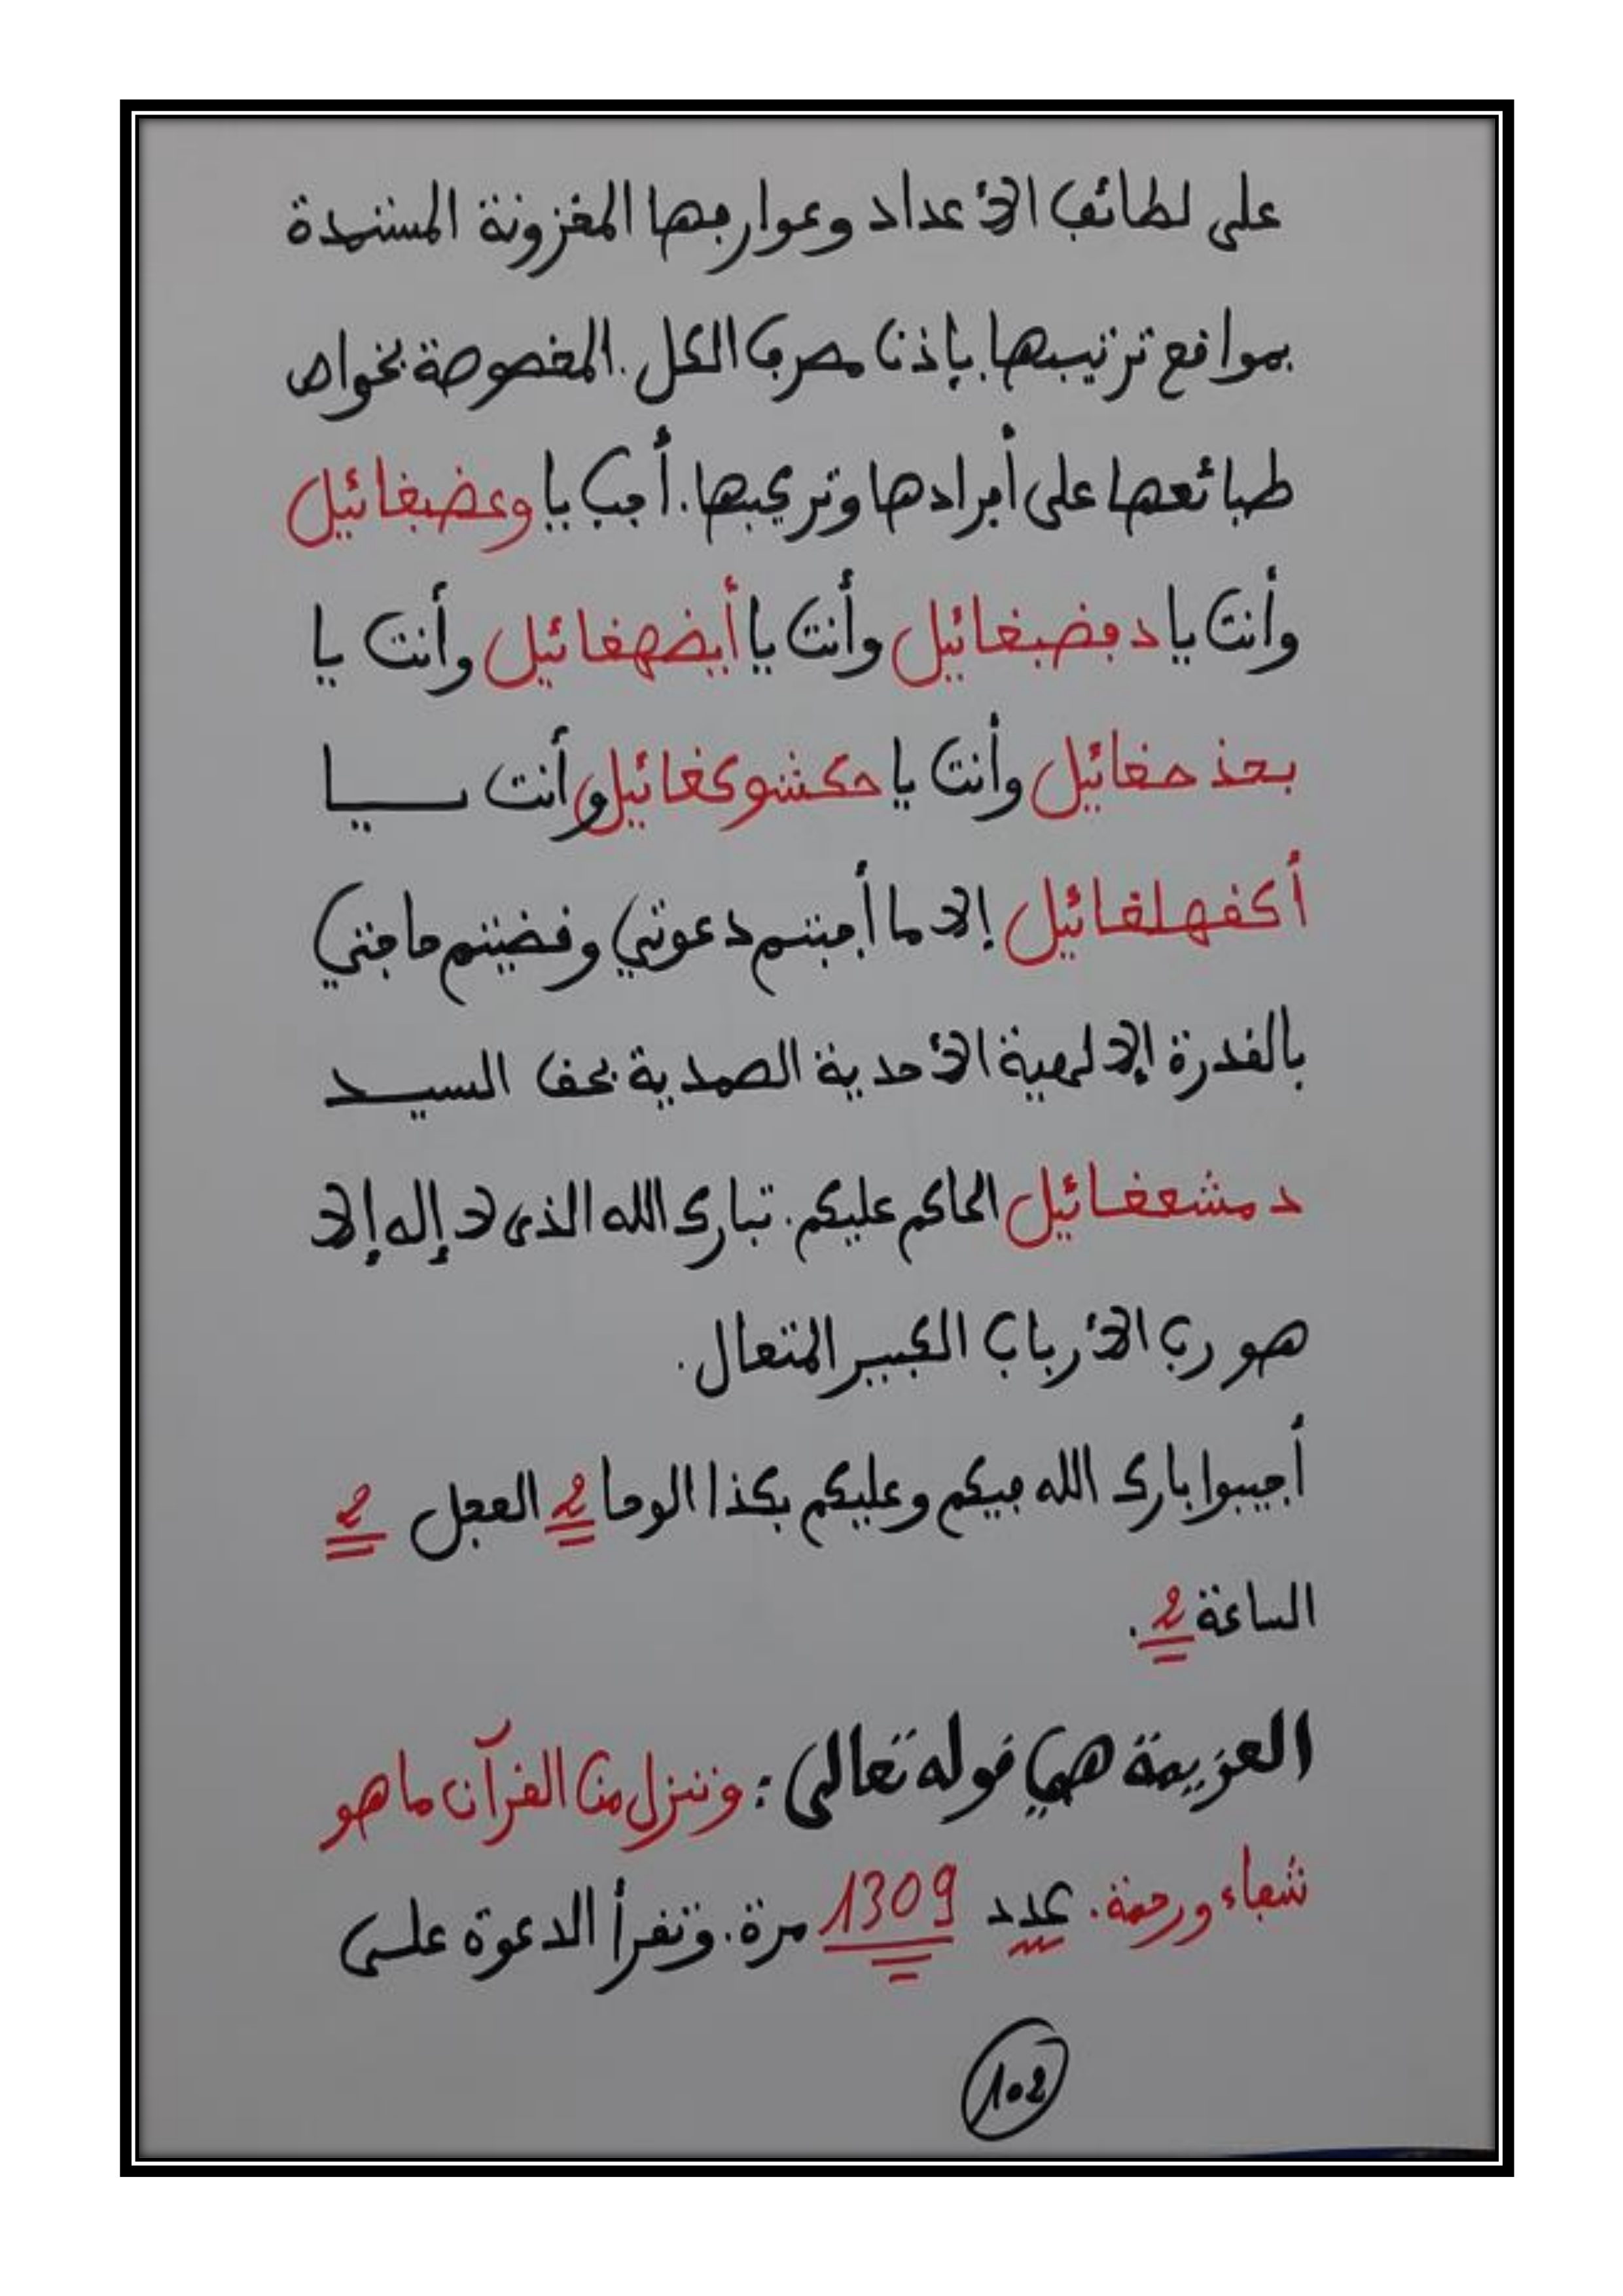 على لطائف الأعداد وعوارفها المخزونة المستمدة
بمواقع ترتيبها بإذن مصرف الكل. المخصوصة بخواص
طبائعها على أفرادها وتركيبها. أجب يا وعضبغائيل
وأنت يا دفضبغائيل وأنت يا أبضهغائيل وأنت يا
بعذحغائيل وأنت يا حكشوكغائيل وأنت يا
أكفهلغائيل إلا ما أجبتم دعوتي وقضيتم حاجتي
بالقدرة الإلهية الأحدية الصمدية بحق السيد
دمشعغائيل الحاكم عليكم. تبارك الله الذي لا إله إلا
هو رب الأرباب الكبير المتعال.
أجيبوا بارك الله فيكم وعليكم بكذا الوحا 2 العجل 2
الساعة 2.
العزيمة هي قوله تعالى: وننزل من القرآن ما هو
شفاء ورحمة. عدد 1309 مرة. وتقرأ الدعوة على
102